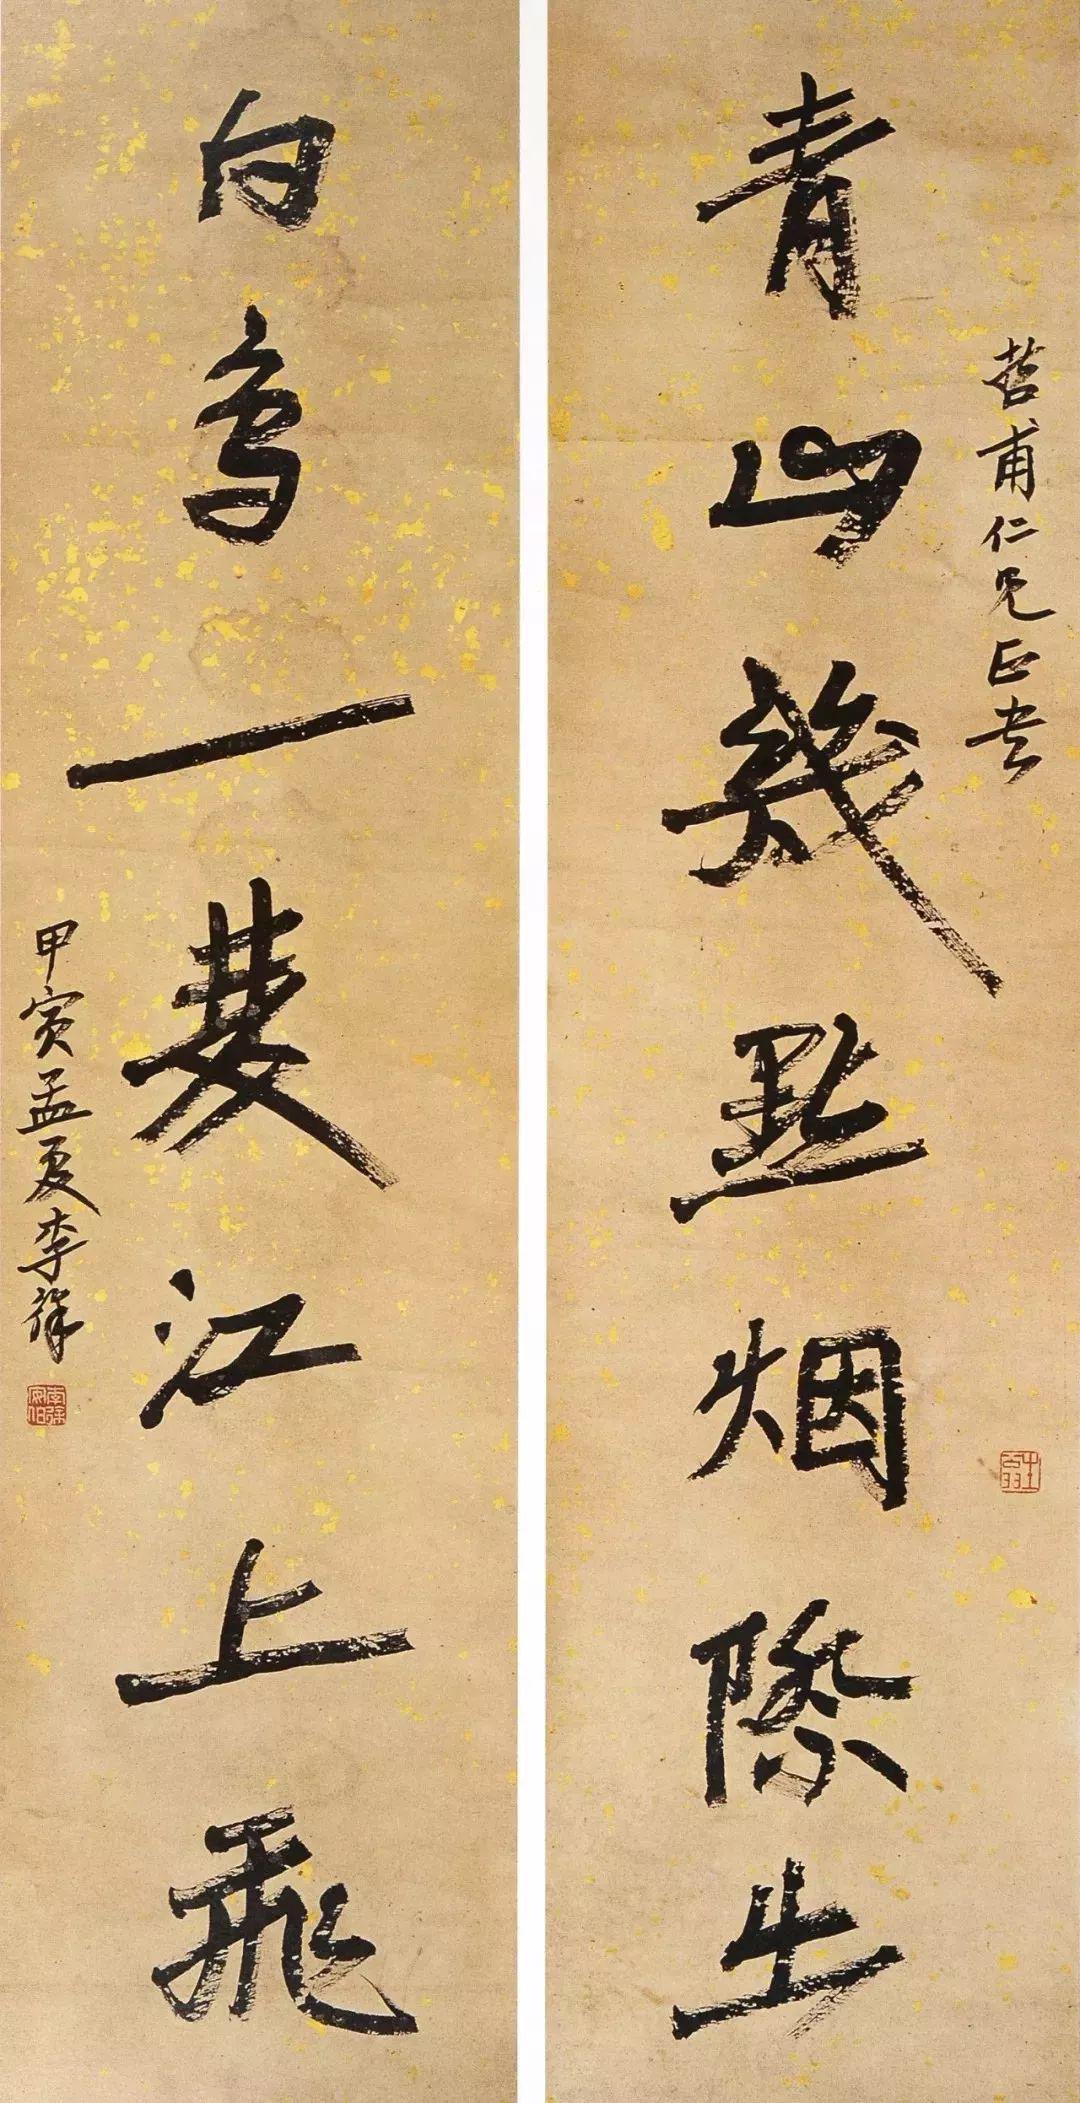 哲甫仁兄正書
青山幾點烟際出
白鳥一雙江上飛
甲寅孟夏李祥